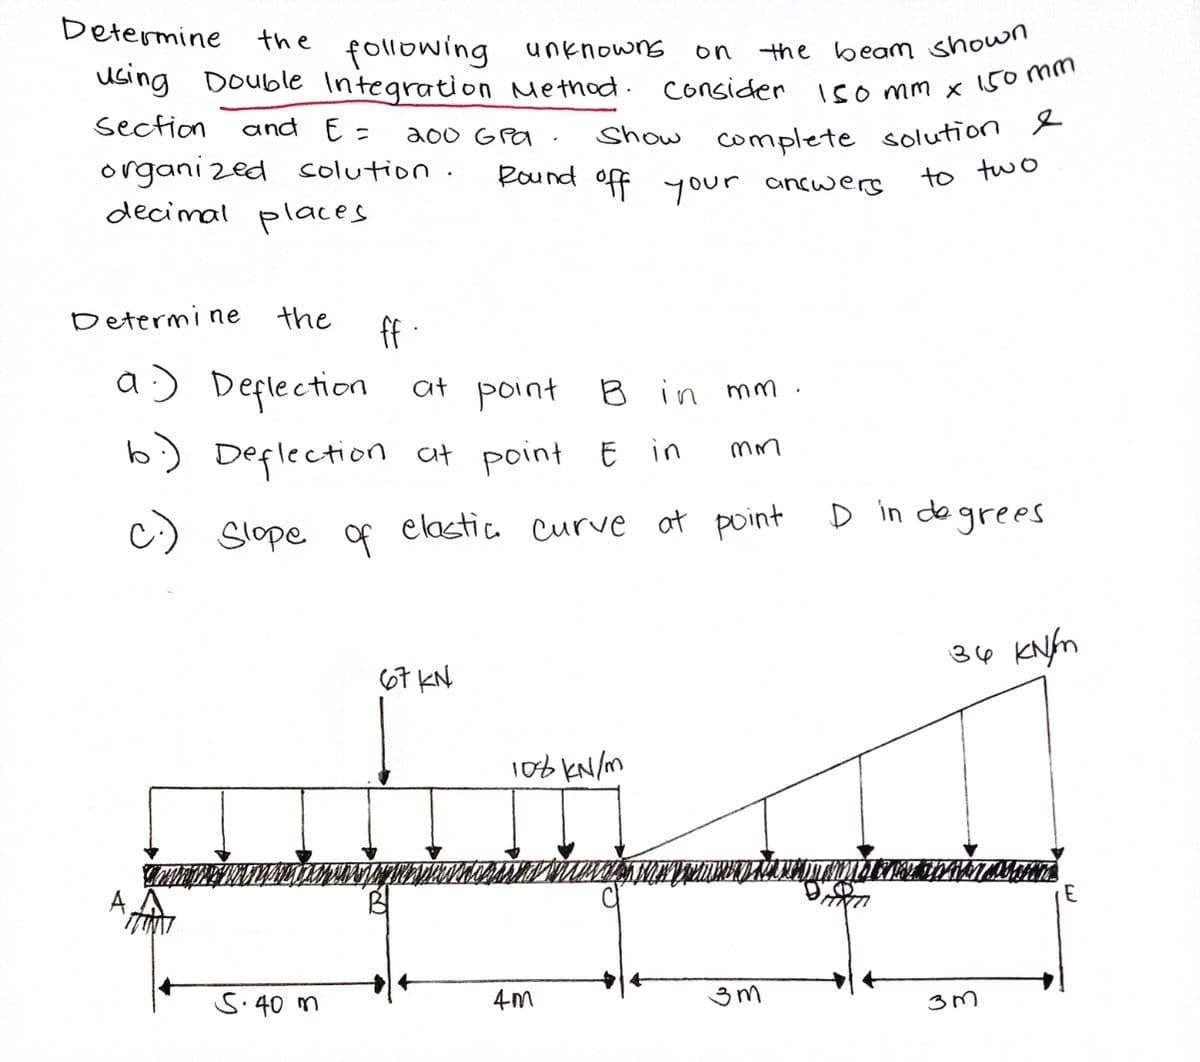 Determine the following unknowns on the beam shown
using Double Integration Method. Consider 150 mm x 150 mm
Section and E = 200 GPa. Show complete solution &
organized solution. Round off your answers to two
decimal places
Determine the ff.
a.) Deflection at point B in mm.
b.) Deflection at point E in mm
c.) Slope of elastic curve at point D in degrees
36 KN/m
67 KN
108 KN/m
A B C D E
5.40 m 4m 3m 3m